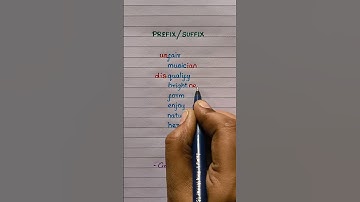 PREFIX/SUFFIX
unfair
musician
disqualify
bright ne
form
enjoy
natu